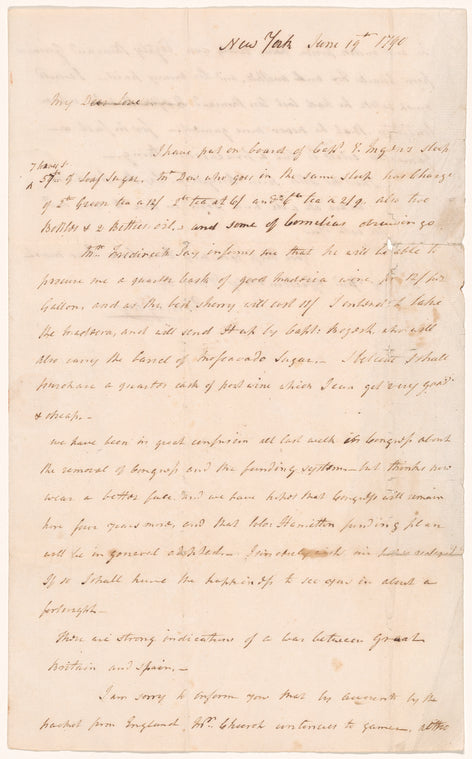 New York June 19th 1790
My Dear Love
I have put on board of Capt. V. Ingen's sloop
7 loaves
57lb of Loaf Sugar. Mr Dew who goes in the same sloop has Charge
of 2lb Green tea a 12/ 2lb tea at 6/ and 6lb tea a 2/9. also two
Bottles & 2 Bettees oil. and some of Cornelias drawings.
Mr. Frederick Jay informs me that he will be able to
procure me a quarter Cask of good Maderia wine, for 12/ per
Gallon, and as the best sherry will cost 11/ I intend to take
the Maderia, and will send it up by Capt. Bogart, who will
also carry the barrel of Moscavado Sugar.- I believe I shall
purchase a quarter cask of port wine which I can get very good
& cheap.-
we have been in great confusion all last week in Congress about
the removal of Congress and the funding system - but things now
wear a better face, and we have hopes that Congress will remain
here four years more, and that Colo. Hamilton funding plan
will be in general adopted.- I sincerely wish
If so I shall have the happiness to see you in about a
fortnight -
There are strong indications of a war between Great
Britain and Spain.-
I am sorry to inform you that by accounts by the
packet from England, Mr. Church continues to game.